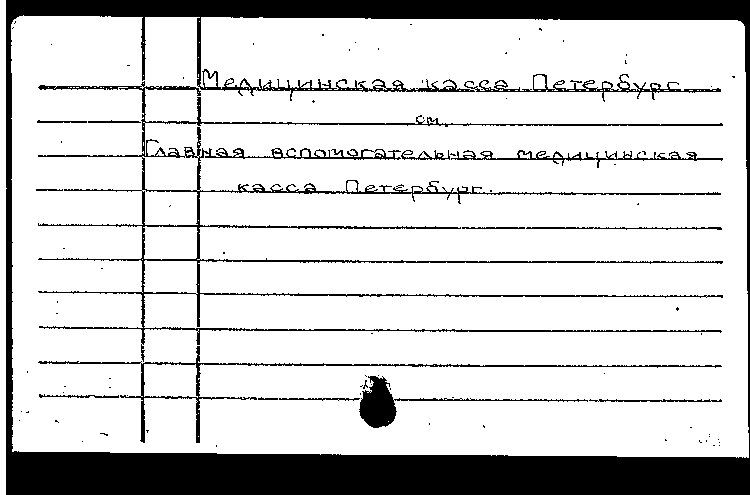 Медицинская касса. Петербург
см.
Главная вспомогательная медицинская
касса Петербург.